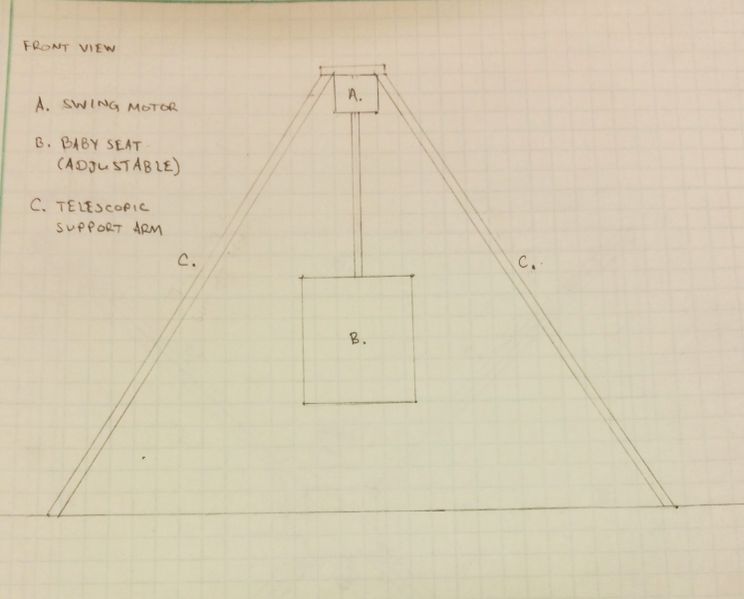 FRONT VIEW
A. SWING MOTOR
B. BABY SEAT
(ADJUSTABLE)
C. TELESCOPIC
SUPPORT ARM
A.
C.
C.
B.